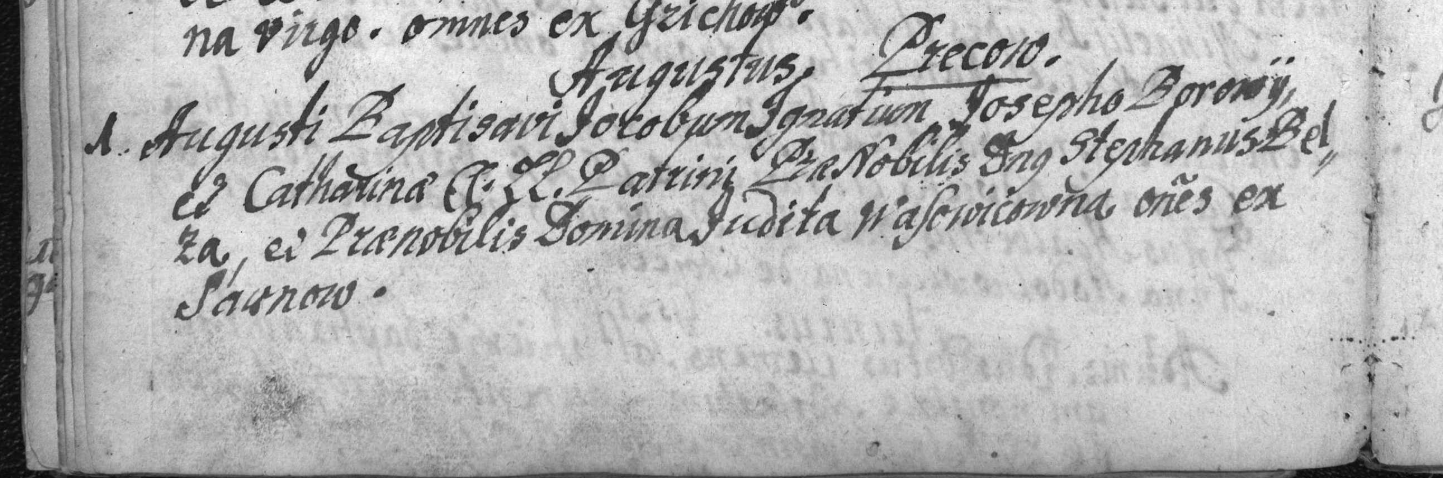 na virgo. omnes ex
Augustus. Precow.
1. Augusti Baptisavi Jacobum Ignatium Josephe Borowÿ,
et Catharinæ C. L. Patrini PræNobilis Dnq Stephanus Bel,,
za, et Prænobilis Domina Judita Wasowicowna, oñes ex
Sarnow.